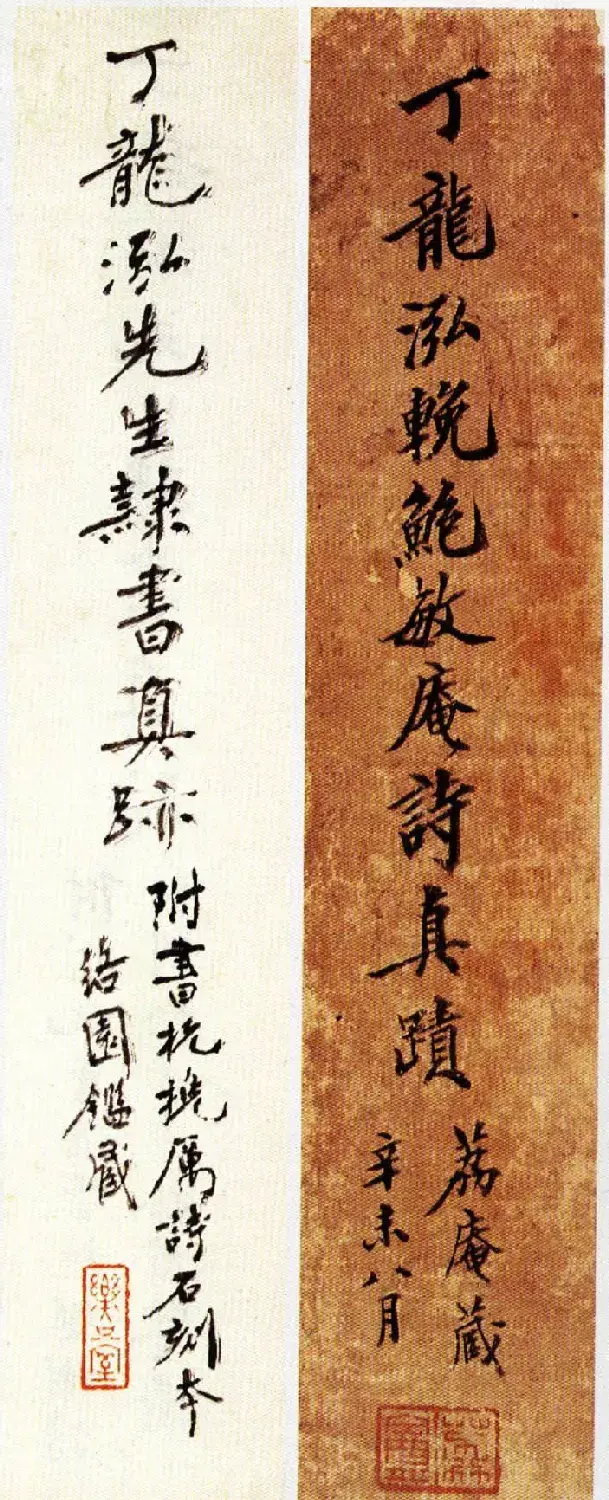 丁龍泓輓鮑敏庵詩真蹟
荔庵藏
辛未八月
丁龍泓先生隸書真跡
附書杭挽厲詩石刻本
絡園鑑藏
樂只室